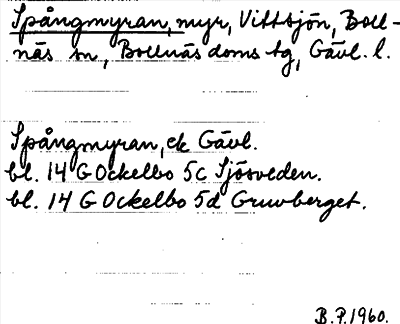 Spångmyran, myr, Vittsjön, Boll-
näs sn, Bollnäs doms tg, Gävl. l.
Spångmyran, ek Gävl.
bl. 14 G Ockelbo 5c Sjösveden.
bl. 14 G Ockelbo 5d Gruvberget.
B.P. 1960.